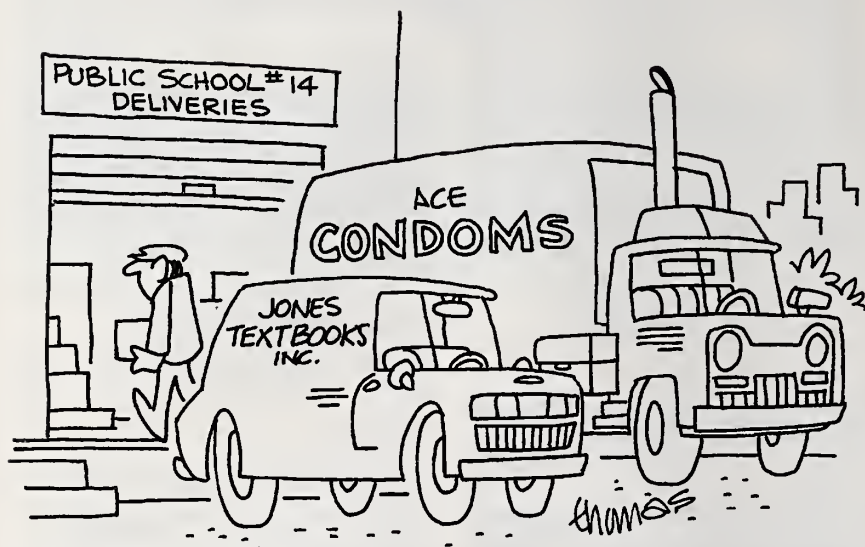 PUBLIC SCHOOL #14
DELIVERIES
ACE
CONDOMS
JONES
TEXTBOOKS
INC.
thomas